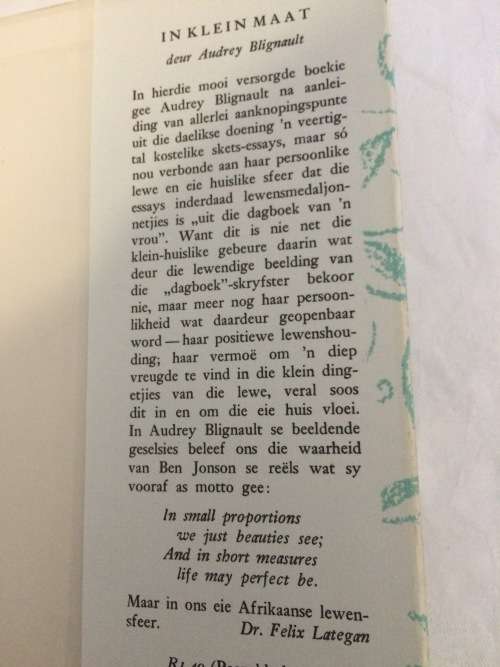 IN KLEIN MAAT
deur Audrey Blignault
In hierdie mooi versorgde boekie
gee Audrey Blignault na aanlei-
ding van allerlei aanknopingspunte
uit die daelikse doening 'n veertig-
tal kostelike skets-essays, maar só
nou verbonde aan haar persoonlike
lewe en eie huislike sfeer dat die
essays inderdaad lewensmedaljon-
netjies is „uit die dagboek van 'n
vrou”. Want dit is nie net die
klein-huislike gebeure daarin wat
deur die lewendige beelding van
die „dagboek”-skryfster bekoor
nie, maar meer nog haar persoon-
likheid wat daardeur geopenbaar
word — haar positiewe lewenshou-
ding; haar vermoë om 'n diep
vreugde te vind in die klein ding-
etjies van die lewe, veral soos
dit in en om die eie huis vloei.
In Audrey Blignault se beeldende
geselsies beleef ons die waarheid
van Ben Jonson se reëls wat sy
vooraf as motto gee:
In small proportions
we just beauties see;
And in short measures
life may perfect be.
Maar in ons eie Afrikaanse lewen-
sfeer.
Dr. Felix Lategan